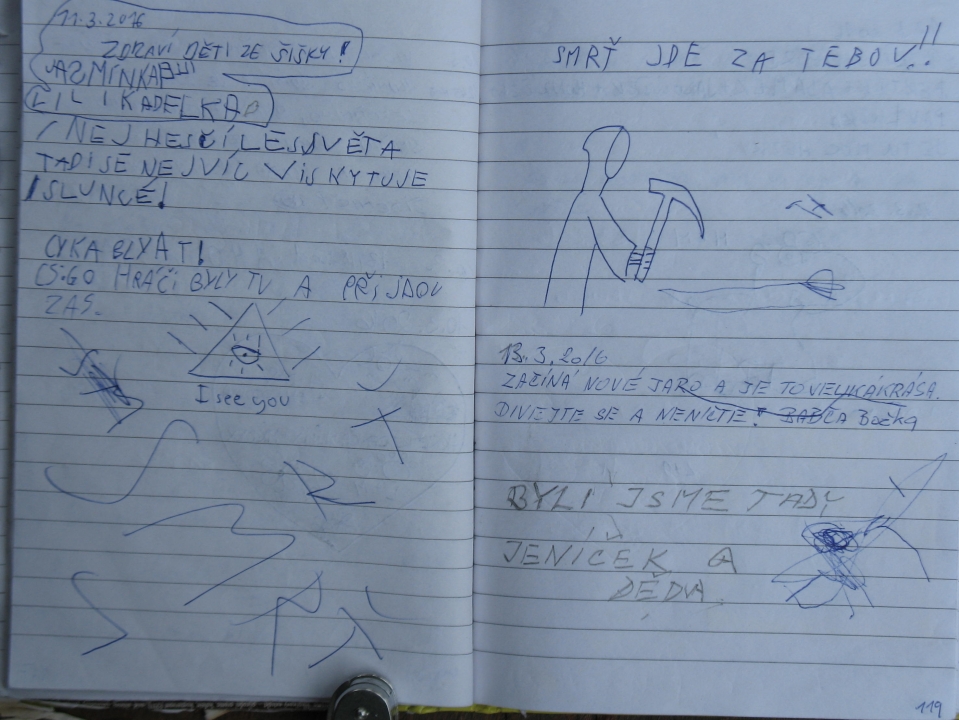 11.3.2016
ZDRAVÍ DĚTI ZE ŠIŠKY!
JASMÍNKA
LILI KADELKA
NEJHESČÍ LES SVĚTA
TADI SE NEJVÍC VISKYTUJE
SLUNCE!
CYKA BLYAT!
CS:GO HRÁČI BYLY TU A PŘIJDOU
ZAS.
I see you
SMRŤ JDE ZA TEBOV!!
13.3.2016
ZAČÍNÁ NOVÉ JARO A JE TO VELIKÁ KRÁSA.
DIVEJTE SE A NENIČTE! BABČA Bočka
BYLI JSME TADY
JENÍČEK A
DĚDA
119